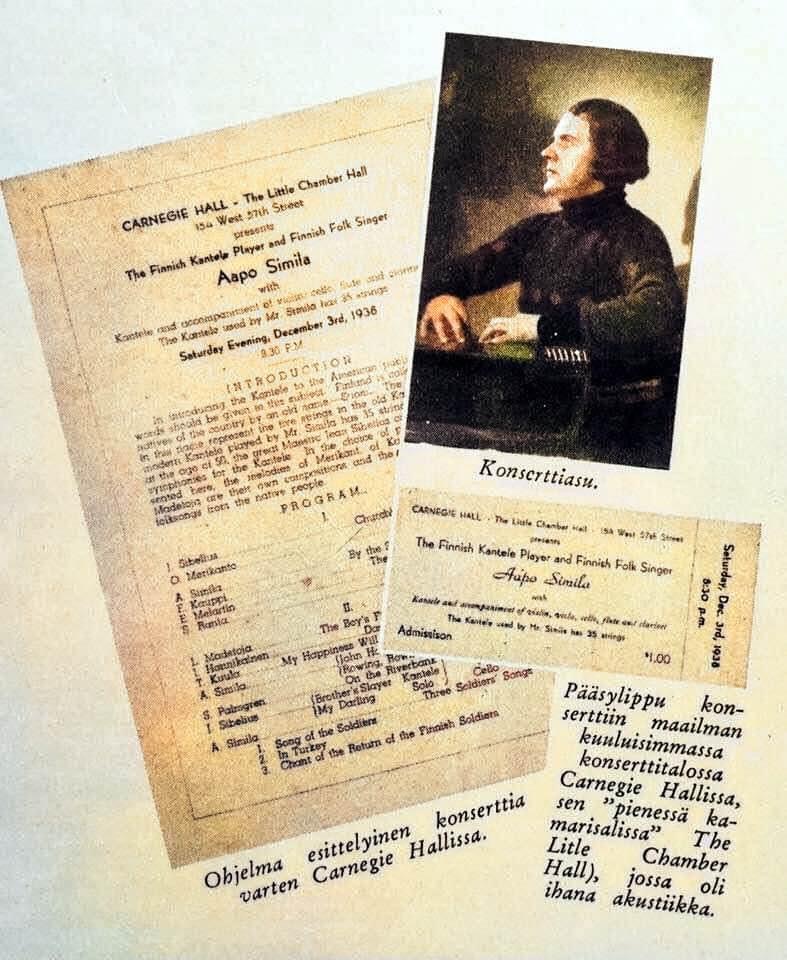 CARNEGIE HALL - The Little Chamber Hall
154 West 57th Street
presents
The Finnish Kantele Player and Finnish Folk Singer
Aapo Simila
with
Kantele and accompaniment of violin, cello, flute and
The Kantele used by Mr. Simila has 35 strings
Saturday Evening, December 3rd, 1938
8:30 P.M.
INTRODUCTION
In introducing the Kantele to the American
words should be given to this subject. Finland is
natives of the country by an old name The
in this name represent the five strings in the old
modern Kantele played by Mr. Simila has 35
at the age of 90, the great Maestro Jean Sibelius
symphonies for the Kantele. In the choice of
sented here, the melodies of Merikant, of
Madetoja are their own compositions and the
folksongs from the native people.
PROGRAM
I.
J. Sibelius
O. Merikanto By the
A. Simila The
F. Kauppi
E. Melartin
S. Ranta
II.
L. Madetoja The Boy's
I. Hannikainen
T. Kuula My Happiness Will
A. Simila (John
(Rowing,
On the Riverbank
S. Palmgren (Brother's Slayer Kantele Cello
J. Sibelius (My Darling Solo
A. Simila Three Soldiers' Songs
1. Song of the Soldiers
2. In Turkey
3. Chant of the Return of the Finnish Soldiers
Konserttiasu.
CARNEGIE HALL - The Little Chamber Hall - 154 West 57th Street
presents
The Finnish Kantele Player and Finnish Folk Singer
Aapo Simila
with
Kantele and accompaniment of violin, viola, cello, flute and clarinet
The Kantele used by Mr. Simila has 35 strings
Admission
$1.00
Saturday, Dec. 3rd, 1938
8:30 p.m.
Pääsylippu kon-
serttiin maailman
kuuluisimmassa
konserttitalossa
Carnegie Hallissa,
sen "pienessä ka-
marisalissa" The
Litle Chamber
Hall), jossa oli
ihana akustiikka.
Ohjelma esittelyinen konserttia
varten Carnegie Hallissa.